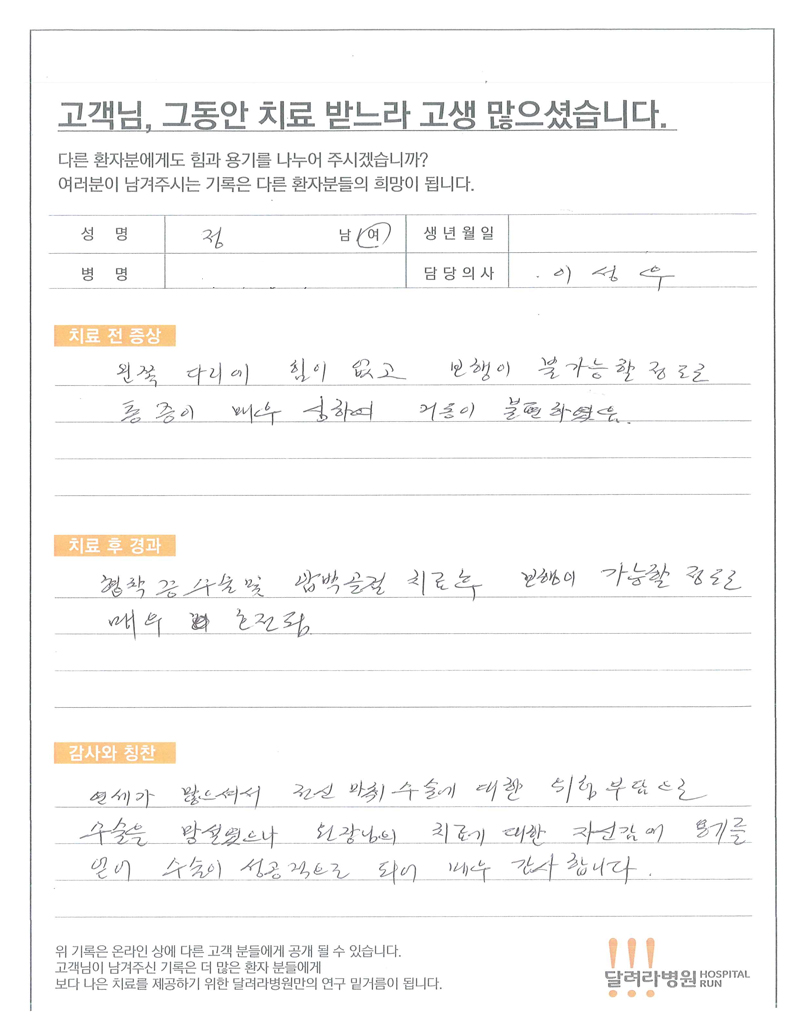 고객님, 그동안 치료 받느라 고생 많으셨습니다.
다른 환자분에게도 힘과 용기를 나누어 주시겠습니까?
여러분이 남겨주시는 기록은 다른 환자분들의 희망이 됩니다.
성 명 정 남/여 생년월일
병 명 담당의사 이성우
치료 전 증상
왼쪽 다리에 힘이 없고 보행이 불가능할 정도로
통증이 매우 심하여 거동이 불편하였음.
치료 후 경과
협착증 수술 및 압박골절 치료 후 보행이 가능할 정도로
매우 호전됨.
감사와 칭찬
연세가 많으셔서 전신 마취 수술에 대한 위험 부담으로
수술을 망설였으나 원장님의 치료에 대한 자신감에 용기를
얻어 수술이 성공적으로 되어 매우 감사합니다.
위 기록은 온라인 상에 다른 고객 분들에게 공개 될 수 있습니다.
고객님이 남겨주신 기록은 더 많은 환자 분들에게
보다 나은 치료를 제공하기 위한 달려라병원만의 연구 밑거름이 됩니다.
!!!
달려라병원 HOSPITAL RUN